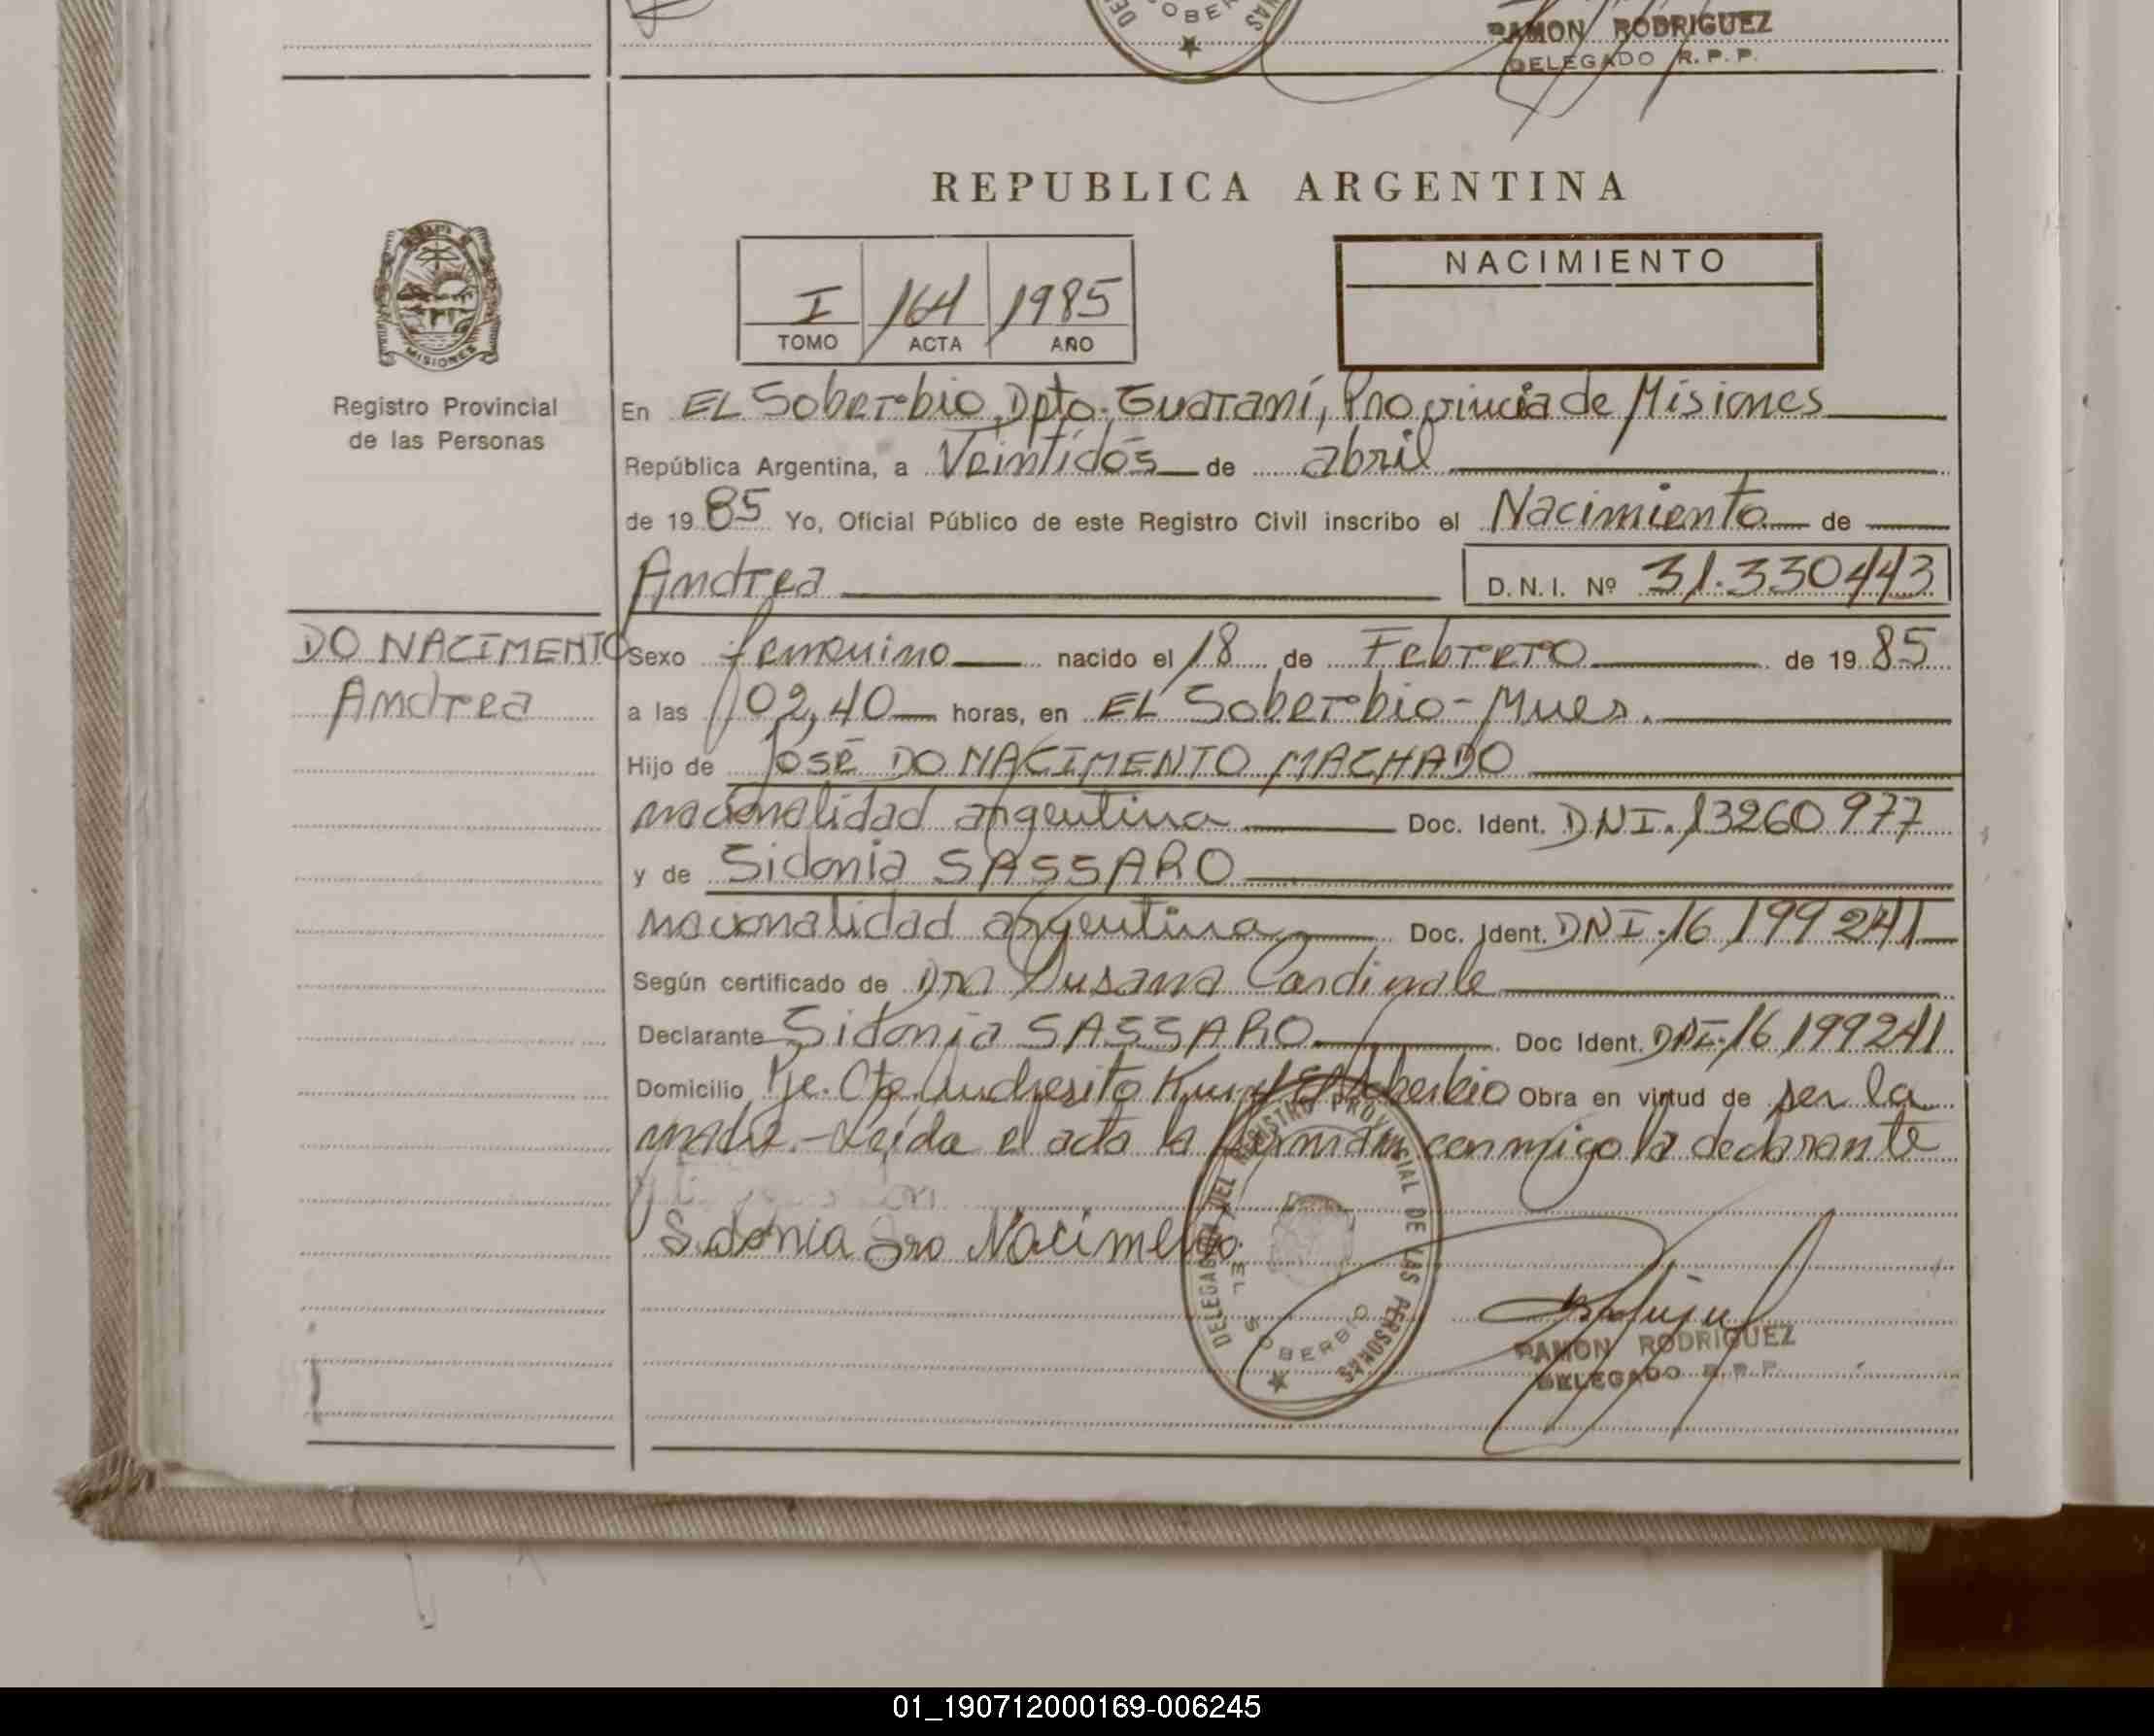 OBER
RAMON RODRIGUEZ
DELEGADO R. P. P.
REPUBLICA ARGENTINA
MISIONES
Registro Provincial
de las Personas
I 164 1985
TOMO ACTA AÑO
NACIMIENTO
En EL Soberbio, Dpto. Guaraní, Provincia de Misiones
República Argentina, a Veintidós de abril
de 1985 Yo, Oficial Público de este Registro Civil inscribo el Nacimiento de
Andrea D.N.I. Nº 31.330443
DO NACIMENTO
Andrea
Sexo femenino nacido el 18 de Febrero de 1985
a las 02,40 horas, en EL Soberbio-Mnes.
Hijo de José DO NACIMENTO MACHADO
nacionalidad argentina Doc. Ident. DNI. 13260977
y de Sidonia SASSARO
nacionalidad argentina Doc. Ident. DNI. 16 199 241
Según certificado de Dra Susana Cardinale
Declarante Sidonia SASSARO Doc Ident. DNI. 16 199241
Domicilio Pje. Cte Andresito El Soberbio Obra en virtud de ser la
madre.- Leída el acta la firman conmigo la declarante
Sidonia Sro Nacimento
DELEGACION DEL REGISTRO PROVINCIAL DE LAS PERSONAS
EL SOBERBIO
RAMON RODRIGUEZ
DELEGADO R. P. P.
01_190712000169-006245